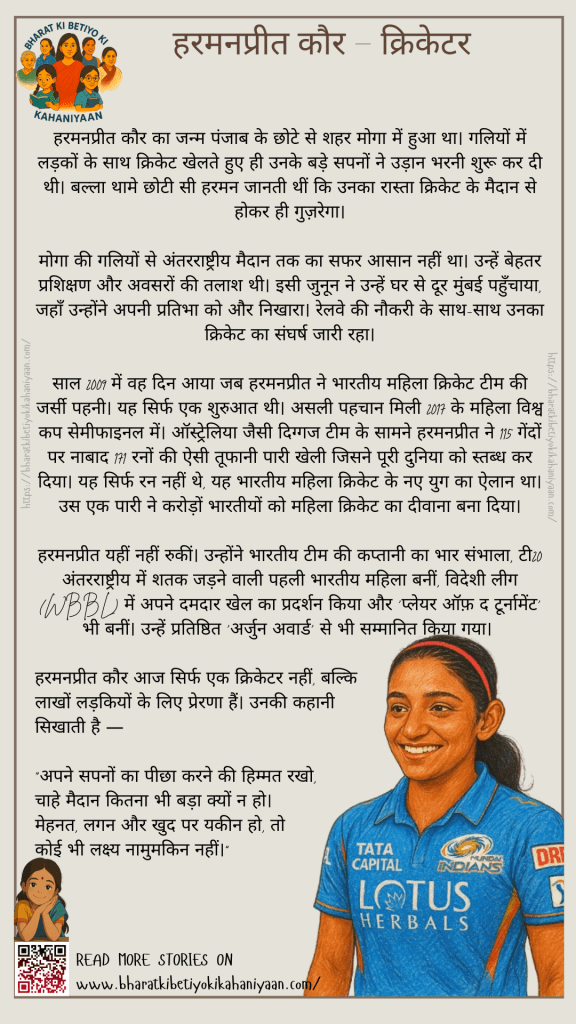 BHARAT KI BETIYO KI
KAHANIYAAN
हरमनप्रीत कौर – क्रिकेटर
हरमनप्रीत कौर का जन्म पंजाब के छोटे से शहर मोगा में हुआ था। गलियों में
लड़कों के साथ क्रिकेट खेलते हुए ही उनके बड़े सपनों ने उड़ान भरनी शुरू कर दी
थी। बल्ला थामे छोटी सी हरमन जानती थीं कि उनका रास्ता क्रिकेट के मैदान से
होकर ही गुज़रेगा।
मोगा की गलियों से अंतरराष्ट्रीय मैदान तक का सफर आसान नहीं था। उन्हें बेहतर
प्रशिक्षण और अवसरों की तलाश थी। इसी जुनून ने उन्हें घर से दूर मुंबई पहुँचाया,
जहाँ उन्होंने अपनी प्रतिभा को और निखारा। रेलवे की नौकरी के साथ-साथ उनका
क्रिकेट का संघर्ष जारी रहा।
साल 2009 में वह दिन आया जब हरमनप्रीत ने भारतीय महिला क्रिकेट टीम की
जर्सी पहनी। यह सिर्फ एक शुरुआत थी। असली पहचान मिली 2017 के महिला विश्व
कप सेमीफाइनल में। ऑस्ट्रेलिया जैसी दिग्गज टीम के सामने हरमनप्रीत ने 115 गेंदों
पर नाबाद 171 रनों की ऐसी तूफानी पारी खेली जिसने पूरी दुनिया को स्तब्ध कर
दिया। यह सिर्फ रन नहीं थे, यह भारतीय महिला क्रिकेट के नए युग का ऐलान था।
उस एक पारी ने करोड़ों भारतीयों को महिला क्रिकेट का दीवाना बना दिया।
हरमनप्रीत यहीं नहीं रुकीं। उन्होंने भारतीय टीम की कप्तानी का भार संभाला, टी20
अंतरराष्ट्रीय में शतक जड़ने वाली पहली भारतीय महिला बनीं, विदेशी लीग
(WBBL) में अपने दमदार खेल का प्रदर्शन किया और 'प्लेयर ऑफ़ द टूर्नामेंट'
भी बनीं। उन्हें प्रतिष्ठित 'अर्जुन अवार्ड' से भी सम्मानित किया गया।
हरमनप्रीत कौर आज सिर्फ एक क्रिकेटर नहीं, बल्कि
लाखों लड़कियों के लिए प्रेरणा हैं। उनकी कहानी
सिखाती है —
"अपने सपनों का पीछा करने की हिम्मत रखो,
चाहे मैदान कितना भी बड़ा क्यों न हो।
मेहनत, लगन और खुद पर यकीन हो, तो
कोई भी लक्ष्य नामुमकिन नहीं।"
https://bharatkibetiyokikahaniyaan.com/
https://bharatkibetiyokikahaniyaan.com/
TATA
CAPITAL
MUMBAI
INDIANS
DR
LOTUS
HERBALS
READ MORE STORIES ON
www.bharatkibetiyokikahaniyaan.com/